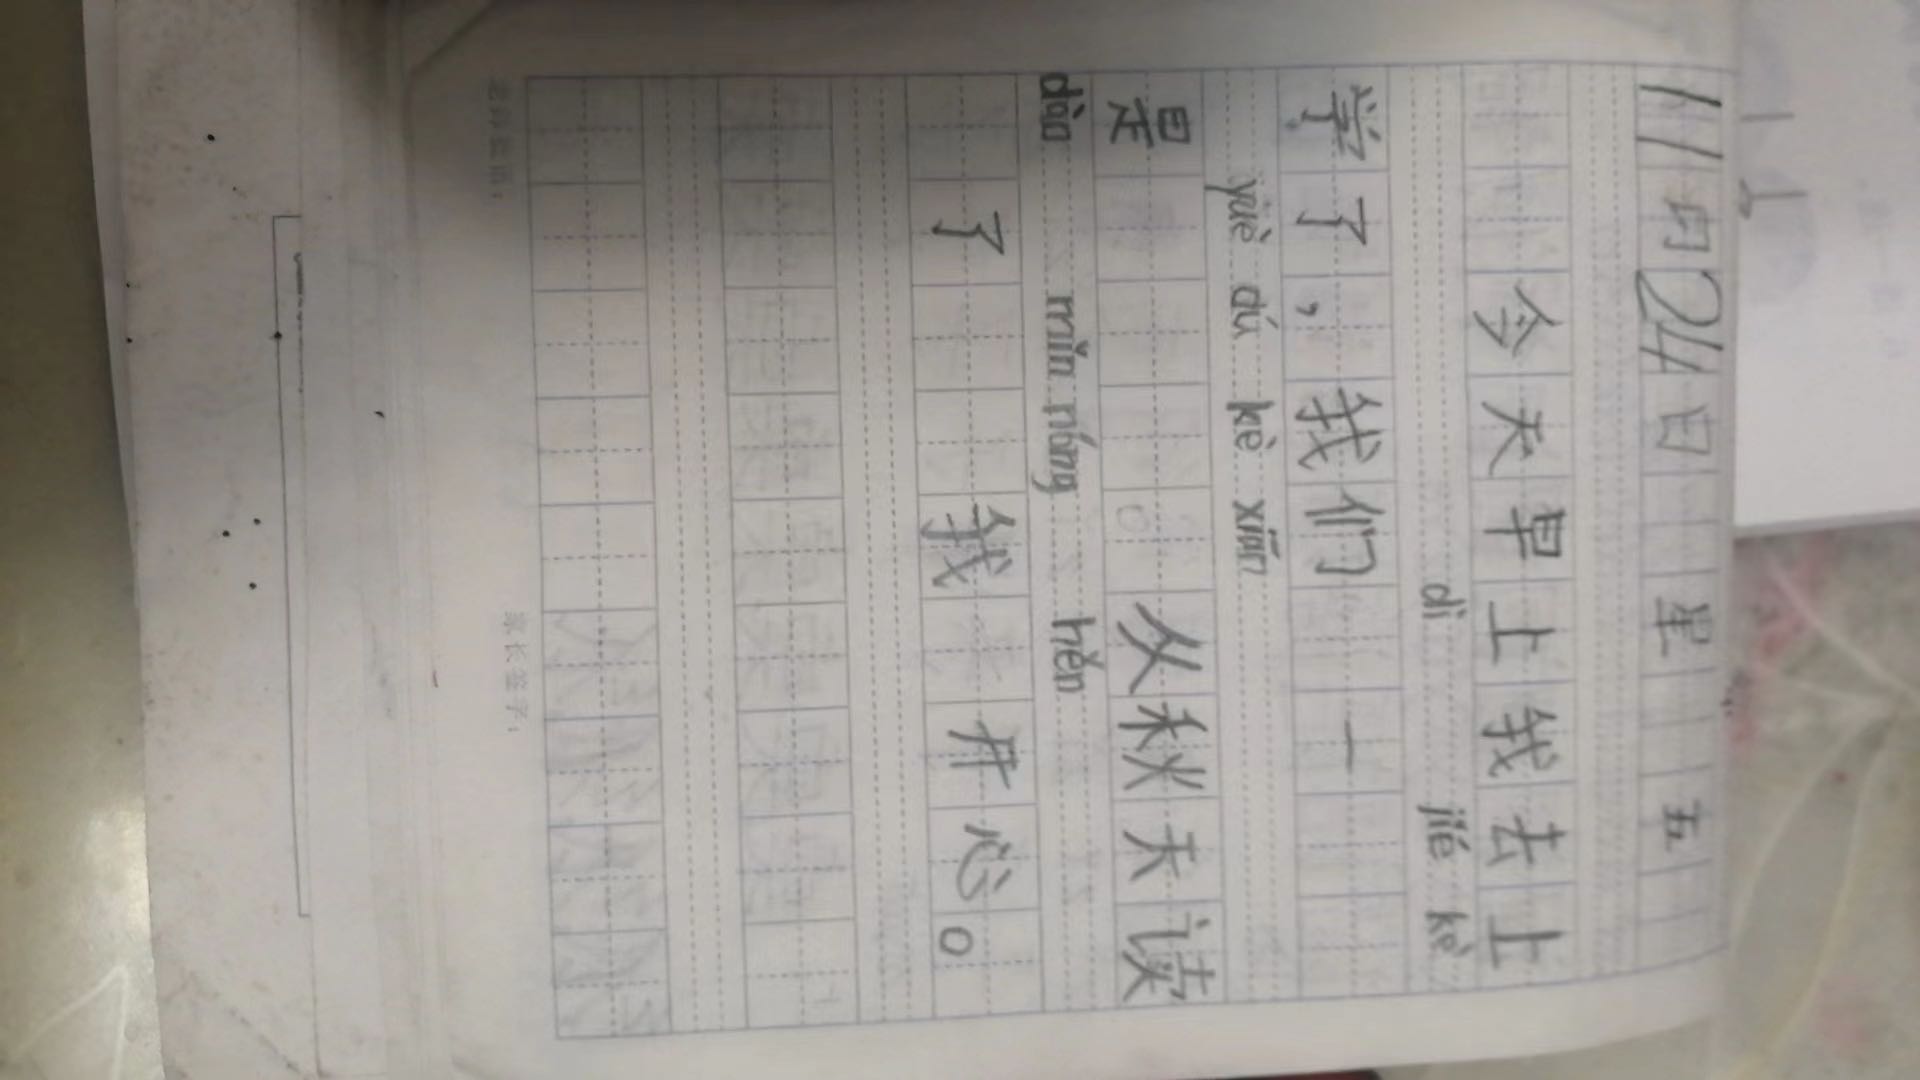 11月24日 星 五
今天早上我去上
dì jié kè
学了，我们 一
yuè dú kè xiān
是 。从秋天读
dào mǐn nóng hěn
了 我 开心。
老师批语：
家长签字：